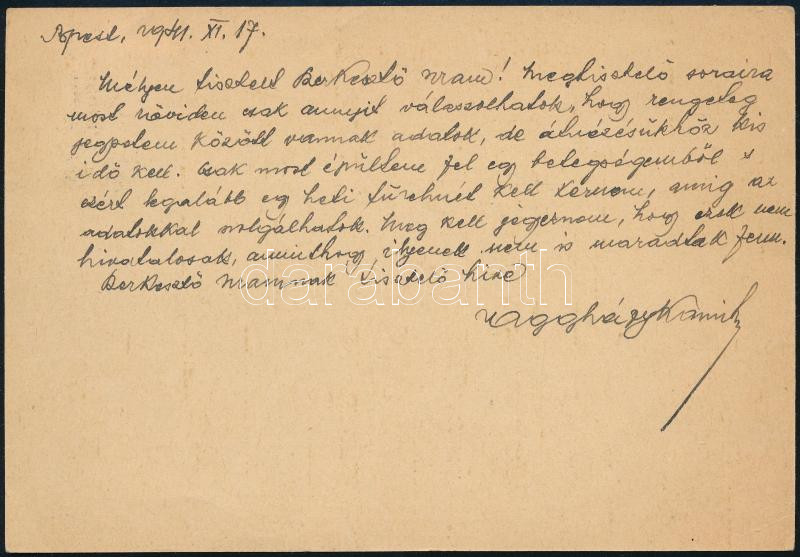 Bpest, 1941. XI. 17.
Mélyen tisztelt Berkesztő Uram! Megtisztelő soraira
most röviden csak annyit válaszolhatok, hogy rengeteg
jegyzetem között vannak adatok, de átnézésükhöz kis
idő kell. Csak most épültem fel egy betegségemből s
ezért legalább egy heti türelmét kell kérnem, amíg az
adatokkal szolgálhatok. Meg kell jegyeznem, hogy ezek nem
hivatalosak, aminthogy ilyenek nem is maradtak fenn.
Berkesztő Uramnak tisztelő híve
darabanth
Nagyházy Kamill